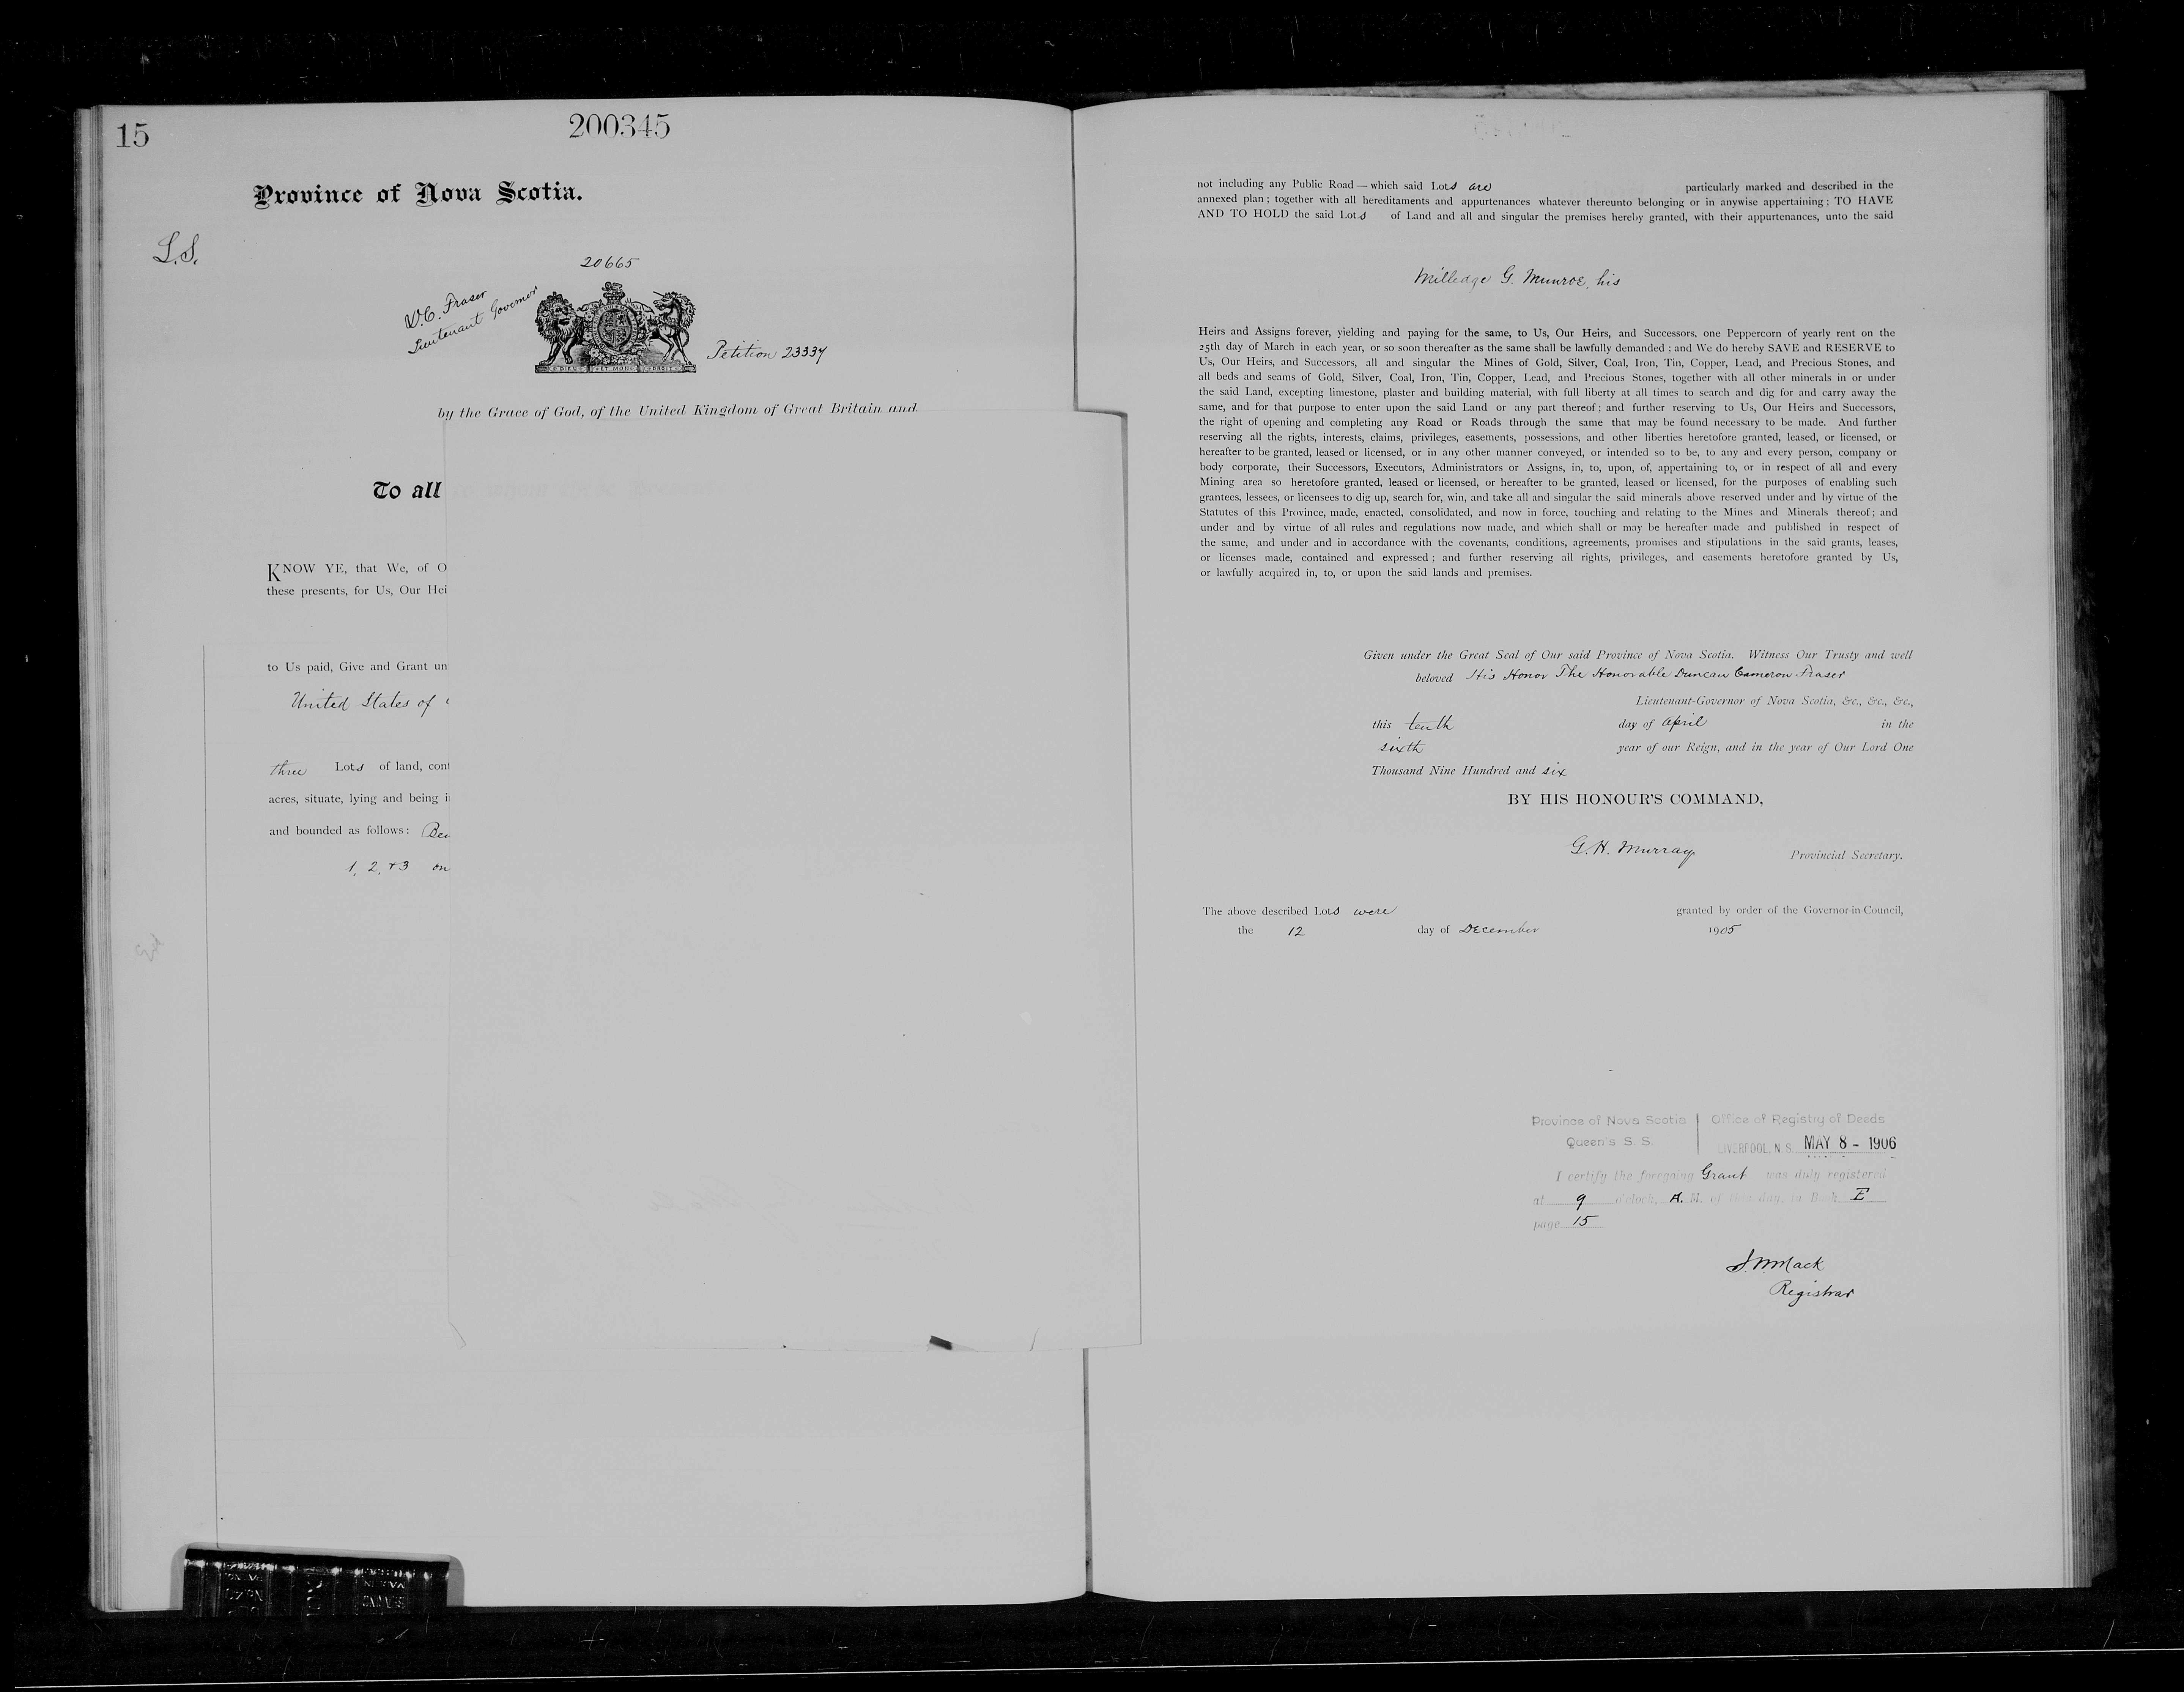 15
200345
Province of Nova Scotia.
L.S.
20665
D.C. Fraser
Lieutenant Governor
DIEU ET MON DROIT
Petition 23337
by the Grace of God, of the United Kingdom of Great Britain and
To all
KNOW YE, that We, of O
these presents, for Us, Our Hei
to Us paid, Give and Grant un
United States of
three Lots of land, cont
acres, situate, lying and being i
and bounded as follows: Bei
1, 2, + 3 on
not including any Public Road — which said Lots are particularly marked and described in the
annexed plan ; together with all hereditaments and appurtenances whatever thereunto belonging or in anywise appertaining ; TO HAVE
AND TO HOLD the said Lots of Land and all and singular the premises hereby granted, with their appurtenances, unto the said
Milledge G. Munroe, his
Heirs and Assigns forever, yielding and paying for the same, to Us, Our Heirs, and Successors, one Peppercorn of yearly rent on the
25th day of March in each year, or so soon thereafter as the same shall be lawfully demanded ; and We do hereby SAVE and RESERVE to
Us, Our Heirs, and Successors, all and singular the Mines of Gold, Silver, Coal, Iron, Tin, Copper, Lead, and Precious Stones, and
all beds and seams of Gold, Silver, Coal, Iron, Tin, Copper, Lead, and Precious Stones, together with all other minerals in or under
the said Land, excepting limestone, plaster and building material, with full liberty at all times to search and dig for and carry away the
same, and for that purpose to enter upon the said Land or any part thereof ; and further reserving to Us, Our Heirs and Successors,
the right of opening and completing any Road or Roads through the same that may be found necessary to be made. And further
reserving all the rights, interests, claims, privileges, easements, possessions, and other liberties heretofore granted, leased, or licensed, or
hereafter to be granted, leased or licensed, or in any other manner conveyed, or intended so to be, to any and every person, company or
body corporate, their Successors, Executors, Administrators or Assigns, in, to, upon, of, appertaining to, or in respect of all and every
Mining area so heretofore granted, leased or licensed, or hereafter to be granted, leased or licensed, for the purposes of enabling such
grantees, lessees, or licensees to dig up, search for, win, and take all and singular the said minerals above reserved under and by virtue of the
Statutes of this Province, made, enacted, consolidated, and now in force, touching and relating to the Mines and Minerals thereof ; and
under and by virtue of all rules and regulations now made, and which shall or may be hereafter made and published in respect of
the same, and under and in accordance with the covenants, conditions, agreements, promises and stipulations in the said grants, leases,
or licenses made, contained and expressed ; and further reserving all rights, privileges, and easements heretofore granted by Us,
or lawfully acquired in, to, or upon the said lands and premises.
Given under the Great Seal of Our said Province of Nova Scotia. Witness Our Trusty and well
beloved His Honor The Honorable Duncan Cameron Fraser
Lieutenant-Governor of Nova Scotia, &c., &c., &c.,
this tenth day of April in the
sixth year of our Reign, and in the year of Our Lord One
Thousand Nine Hundred and six
BY HIS HONOUR'S COMMAND,
G.H. Murray Provincial Secretary.
The above described Lots were granted by order of the Governor-in-Council,
the 12 day of December 1905
Province of Nova Scotia | Office of Registry of Deeds
Queen's S. S. LIVERPOOL, N. S. MAY 8 - 1906
I certify the foregoing Grant was duly registered
at 9 o'clock, A. M. of this day, in Book E
page 15
S. M Mack
Registrar